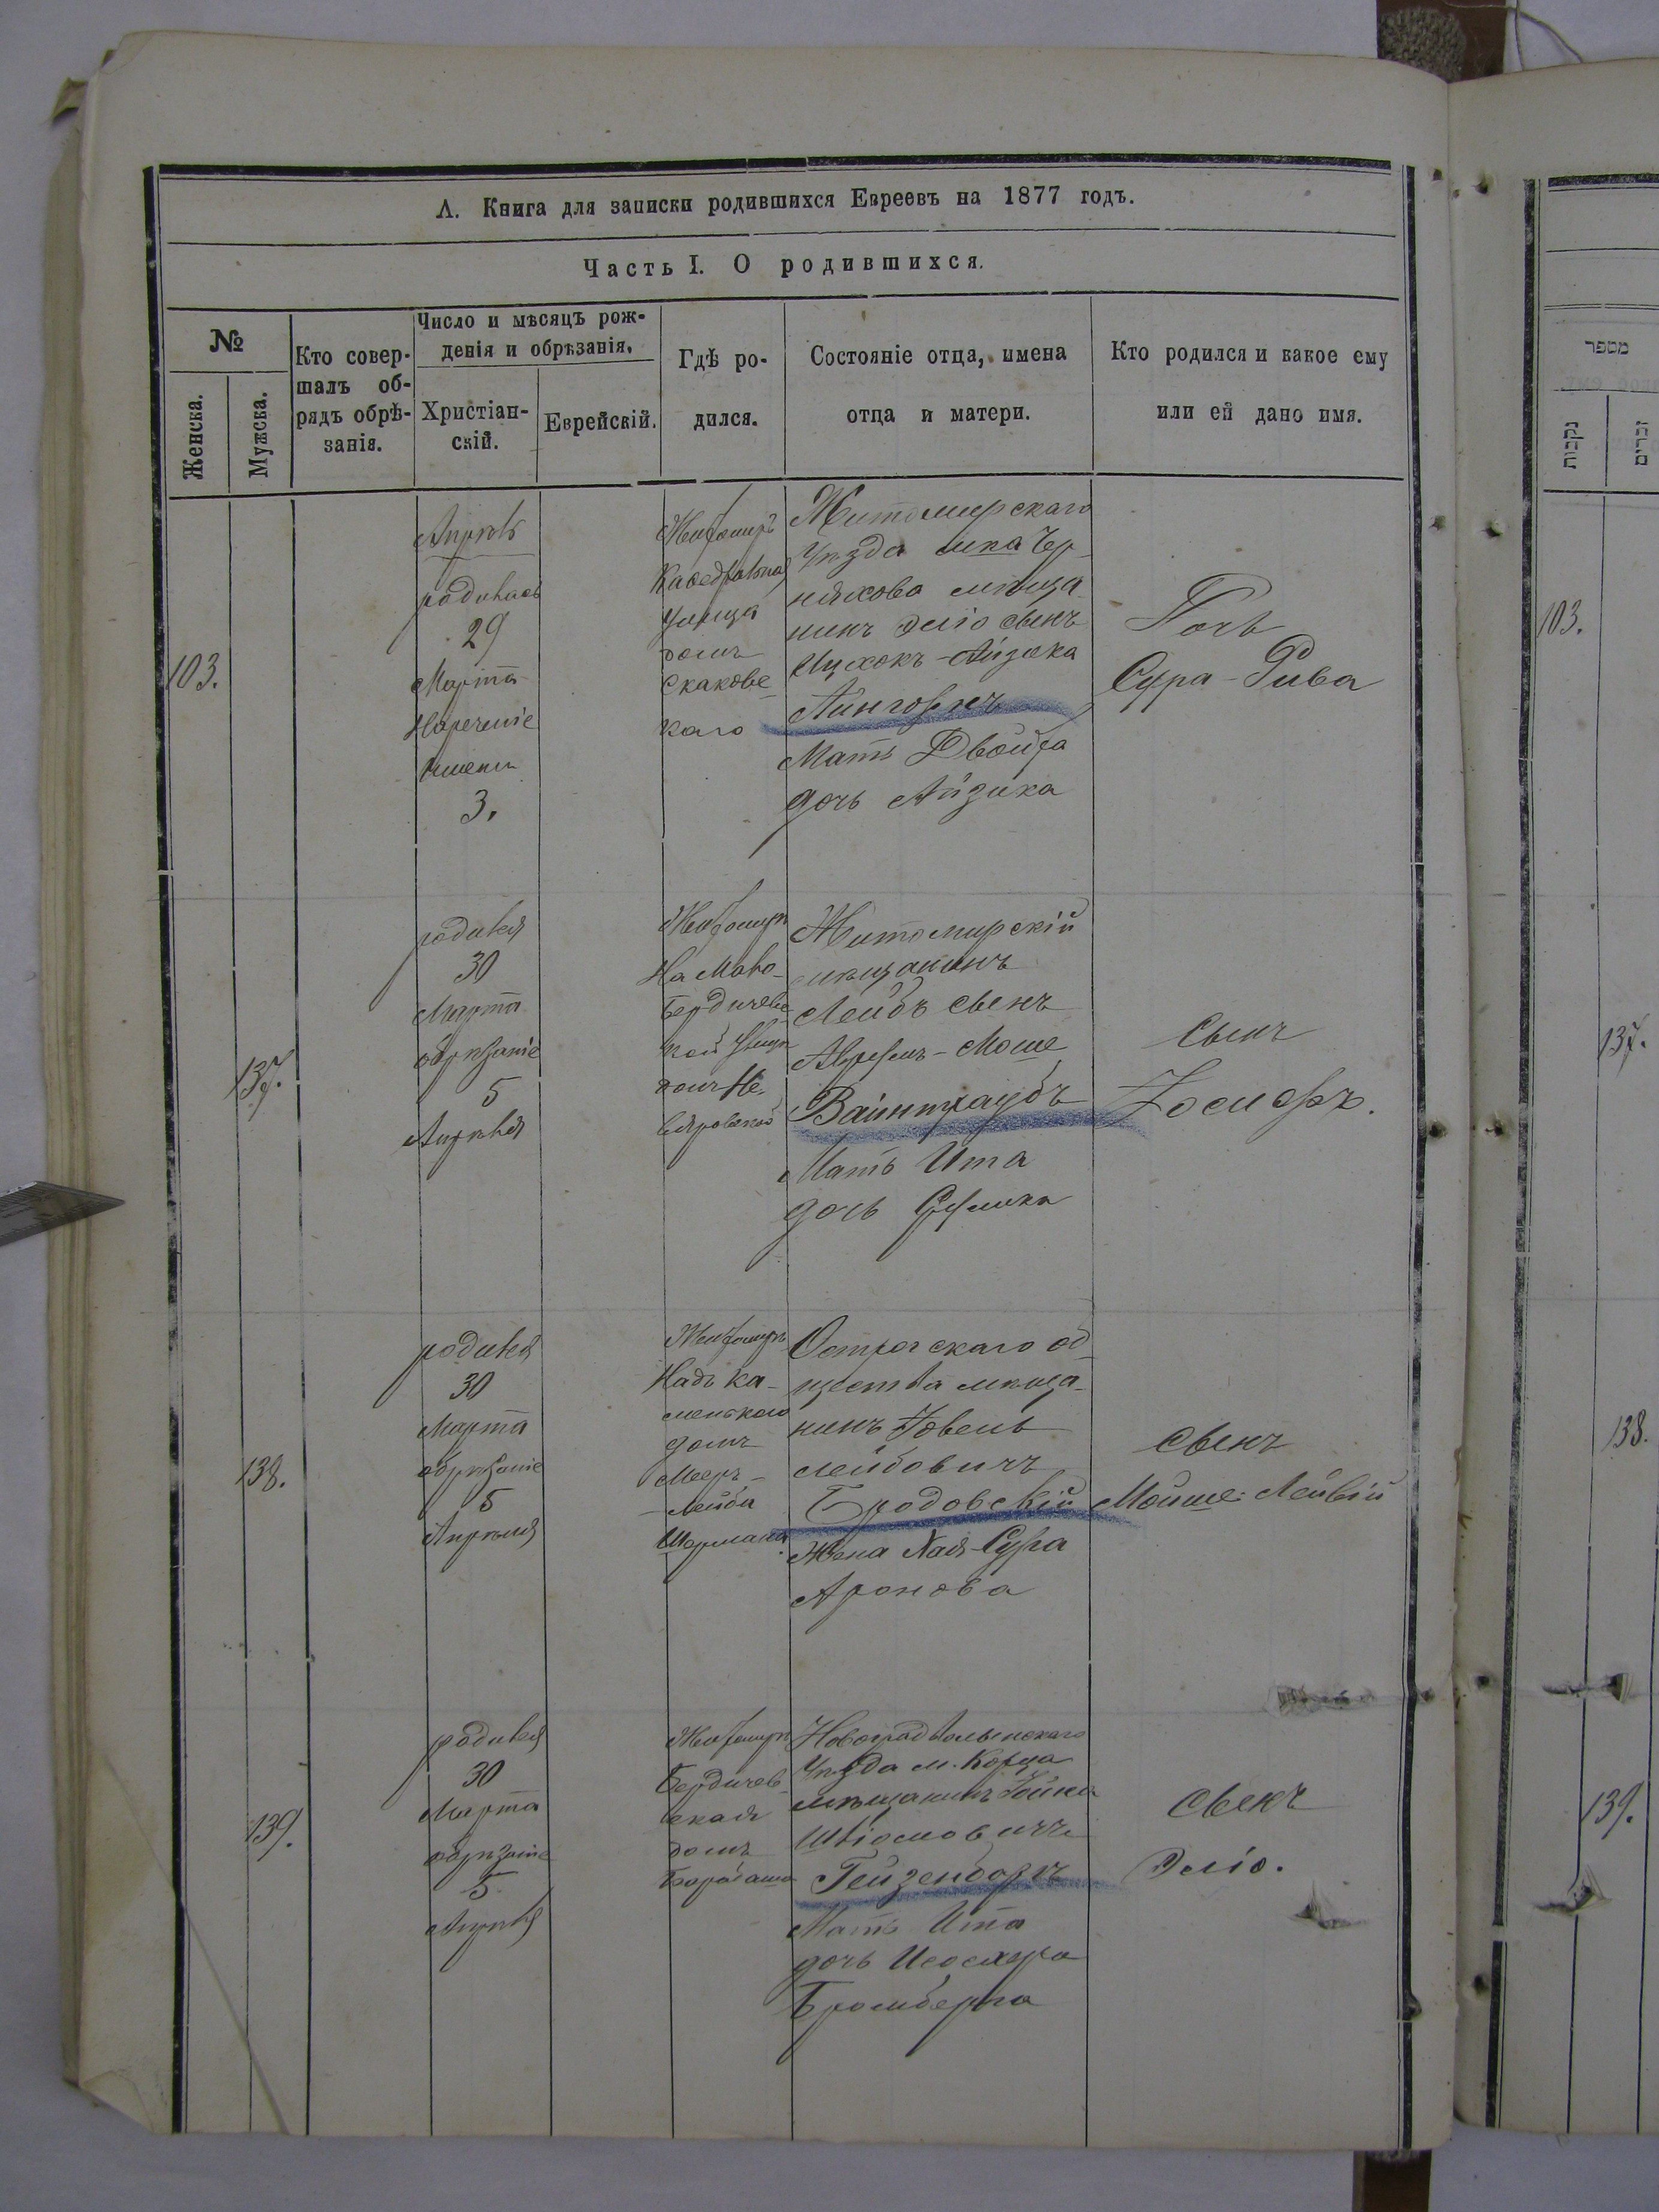 А. Книга для записки родившихся Евреевъ на 1877 годъ.
Часть I. О родившихся.
№
Женска.
Мужска.
Кто совер-
шалъ об-
рядъ обрѣ-
занія.
Число и мѣсяцъ рож-
денія и обрѣзанія.
Христіан-
скій.
Еврейскій.
Гдѣ ро-
дился.
Состояніе отца, имена
отца и матери.
Кто родился и какое ему
или ей дано имя.
103.
Апрѣль
родилась
29
Марта
Нареченіе
имени
3.
Житомиръ
Кафедральная
улица
домъ
Скаковс
каго
Житомирскаго
Уѣзда мка Чер
няхова мѣща
нинъ Эліо сынъ
Ицхокъ-Айзика
Айнгорнъ
Мать Двойра
дочь Айзика
Дочь
Сура-Рива
137.
родился
30
Марта
обрѣзаніе
5
Апрѣля
Житомиръ
На Мало-
Бердичевс
кой улицѣ
домъ Не-
Житомирскій
мѣщанинъ
Лейбъ сынъ
Аврумъ-Моше
Вайнтраубъ
Мать Ита
дочь Срулика
Сынъ
Іосифъ.
138.
родился
30
Марта
обрѣзаніе
5
Апрѣля
Житомиръ
Надъ Ка-
менькою
домъ
Мееръ-
-Лейба
Шермана
Острогскаго об
щества мѣща-
нинъ Ювель
Лейбовичъ
Бродовскій
Жена Хая-Сура
Аронова
Сынъ
Мойше-Лейвій
139.
родился
30
Марта
обрѣзаніе
5
Апрѣля
Житомиръ
Бердичев
ская
домъ
Новоградволынскаго
Уѣзда м. Корца
мѣщанинъ Іойна
Шліомовичъ
Гейзенборъ
Мать Ита
дочь
Бромберга
Сынъ
Эліо.
מספר
נקבות
זכרים
103.
137.
138.
139.